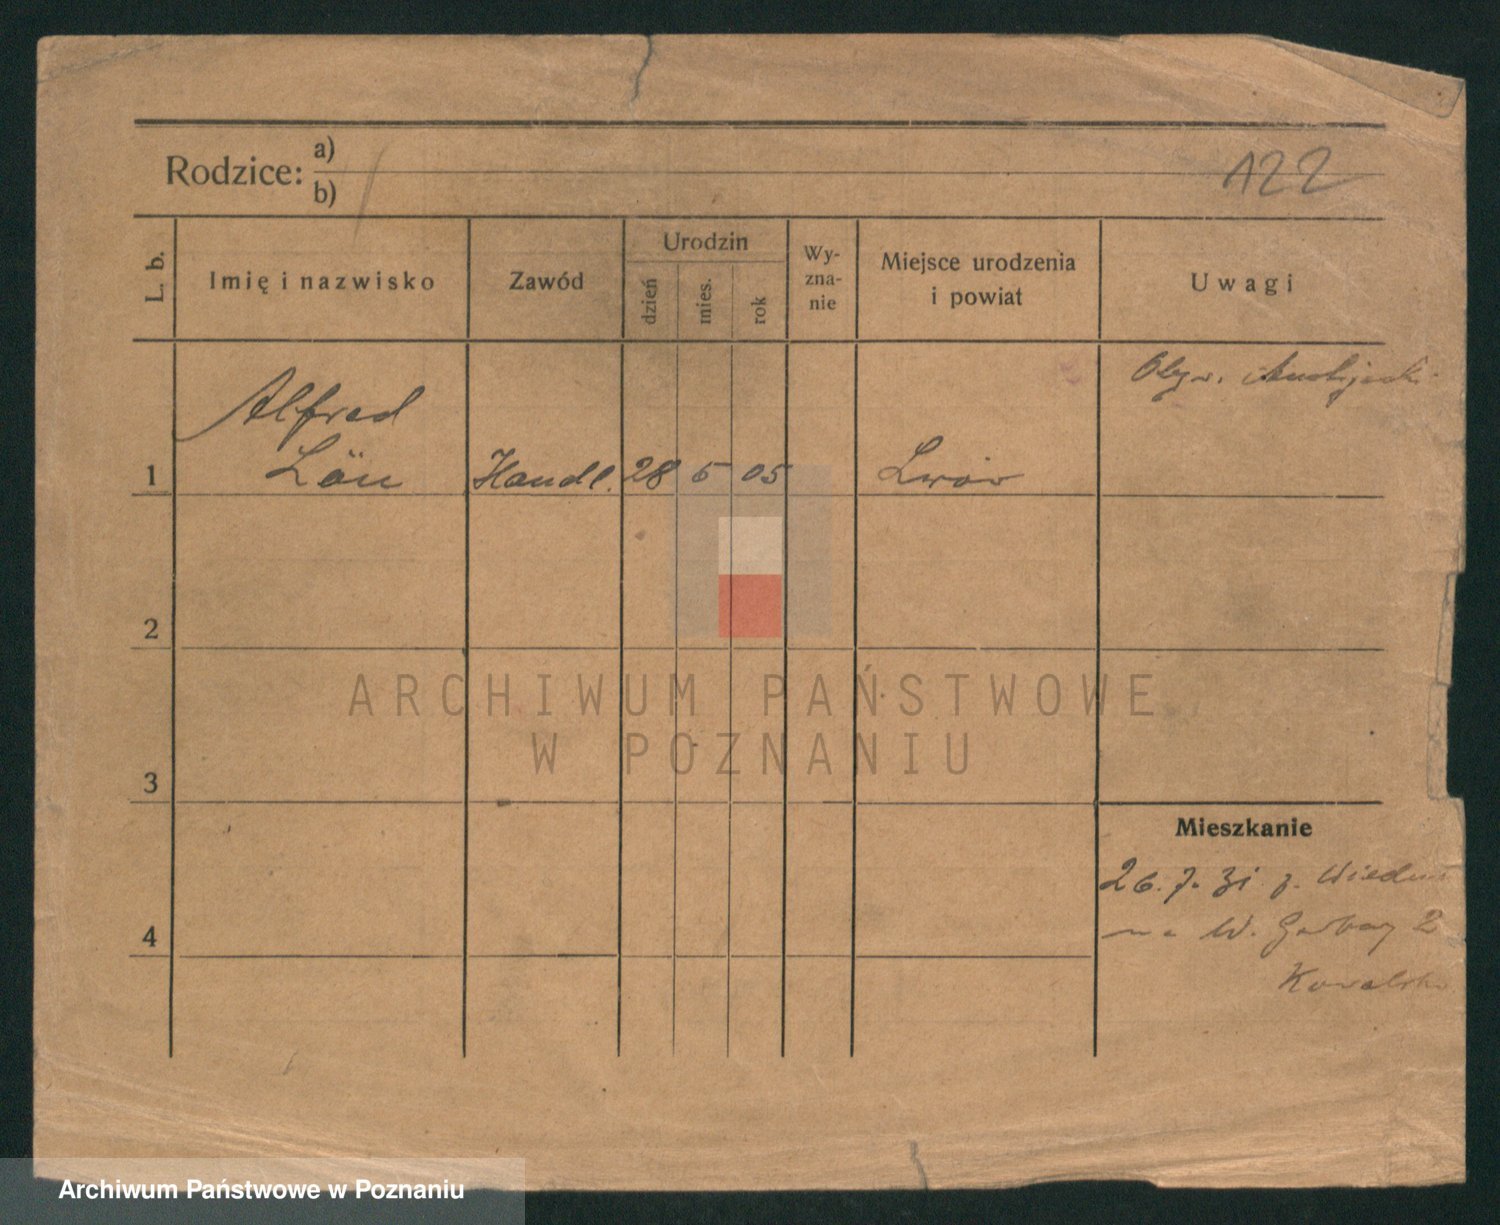 Rodzice: a)
b)
122
L. b.
Imię i nazwisko
Zawód
Urodzin
dzień
mies.
rok
Wy-
zna-
nie
Miejsce urodzenia
i powiat
Uwagi
Obyw.
Alfred
1 Löw Handl. 28 5 05 Lwów
2
ARCHIWUM PAŃSTWOWE
W POZNANIU
3
Mieszkanie
26.7.31 z. Wiednia
4
na W. Garbary 2
Kowalska
Archiwum Państwowe w Poznaniu